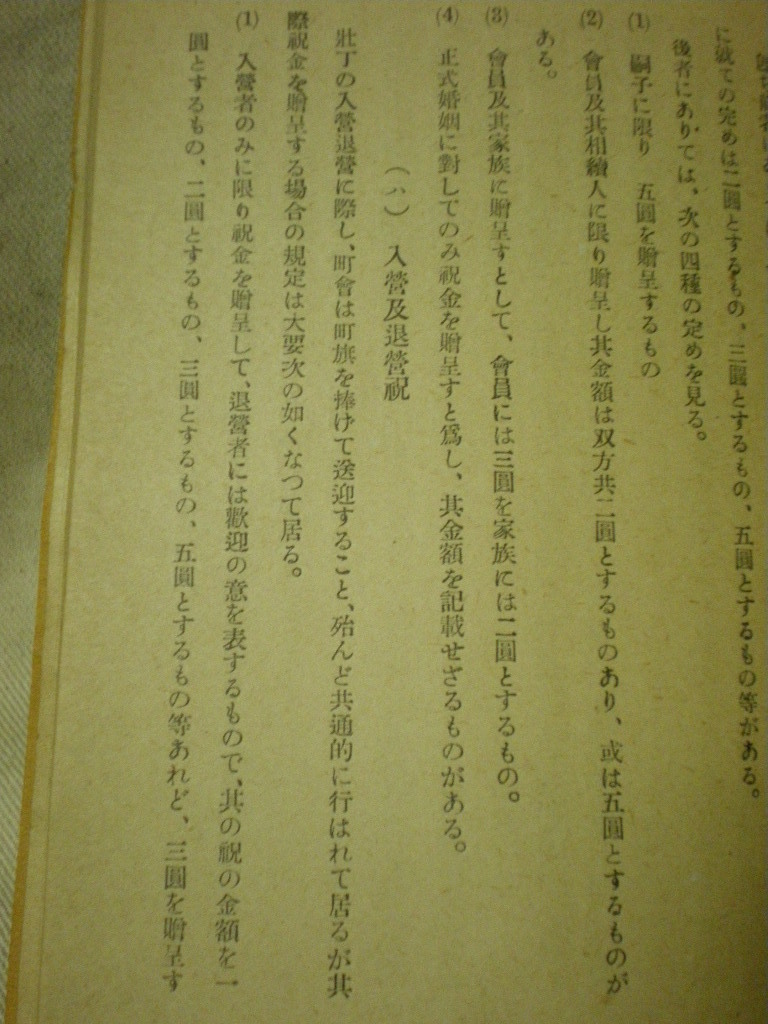 に就ての定めは二圓とするもの、三圓とするもの、五圓とするもの等がある。
後者にありては、次の四種の定めを見る。
(1) 嗣子に限り 五圓を贈呈するもの
(2) 會員及其相續人に限り贈呈し其金額は双方共二圓とするものあり、或は五圓とするものが
ある。
(3) 會員及其家族に贈呈すとして、會員には三圓を家族には二圓とするもの。
(4) 正式婚姻に對してのみ祝金を贈呈すと爲し、其金額を記載せざるものがある。
(ハ) 入營及退營祝
壯丁の入營退營に際し、町會は町旗を捧げて送迎すること、殆んど共通的に行はれて居るが其
際祝金を贈呈する場合の規定は大要次の如くなつて居る。
(1) 入營者のみに限り祝金を贈呈して、退營者には歡迎の意を表するもので、其の祝の金額を一
圓とするもの、二圓とするもの、三圓とするもの、五圓とするもの等あれど、三圓を贈呈す